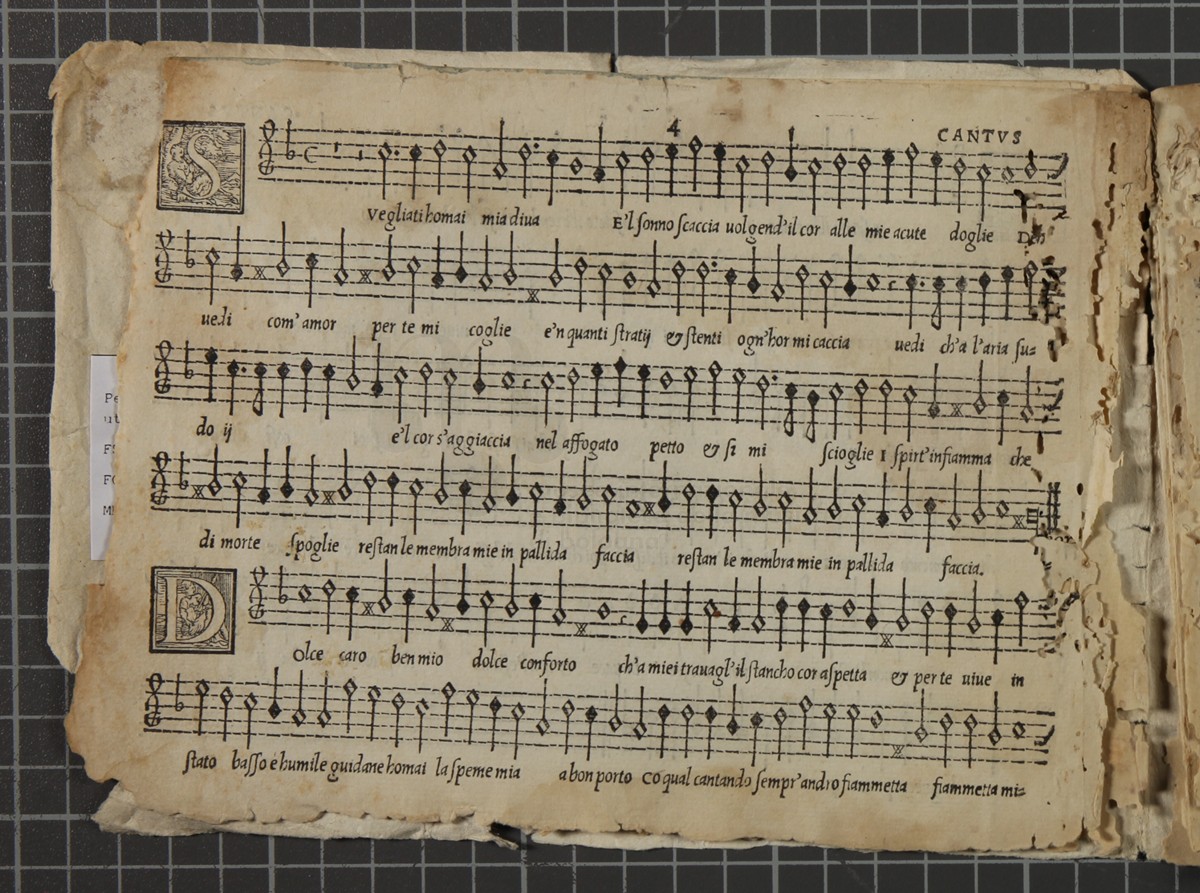 4 CANTVS
S
Vegliati homai mia diua E'l sonno scaccia uolgend'il cor alle mie acute doglie Deh
uedi com'amor per te mi coglie e'n quanti stratij & stenti ogn'hor mi caccia uedi ch'a l'aria su=
do ij e'l cor s'aggiaccia nel affogato petto & si mi scioglie I spirt'infiamma che
di morte spoglie restan le membra mie in pallida faccia restan le membra mie in pallida faccia.
D
Olce caro ben mio dolce conforto ch'a miei trauagl'il stancho cor aspetta & per te uiue in
stato basso e humile guidane homai la speme mia a bon porto Co qual cantando sempr'andro fiammetta fiammetta mi=